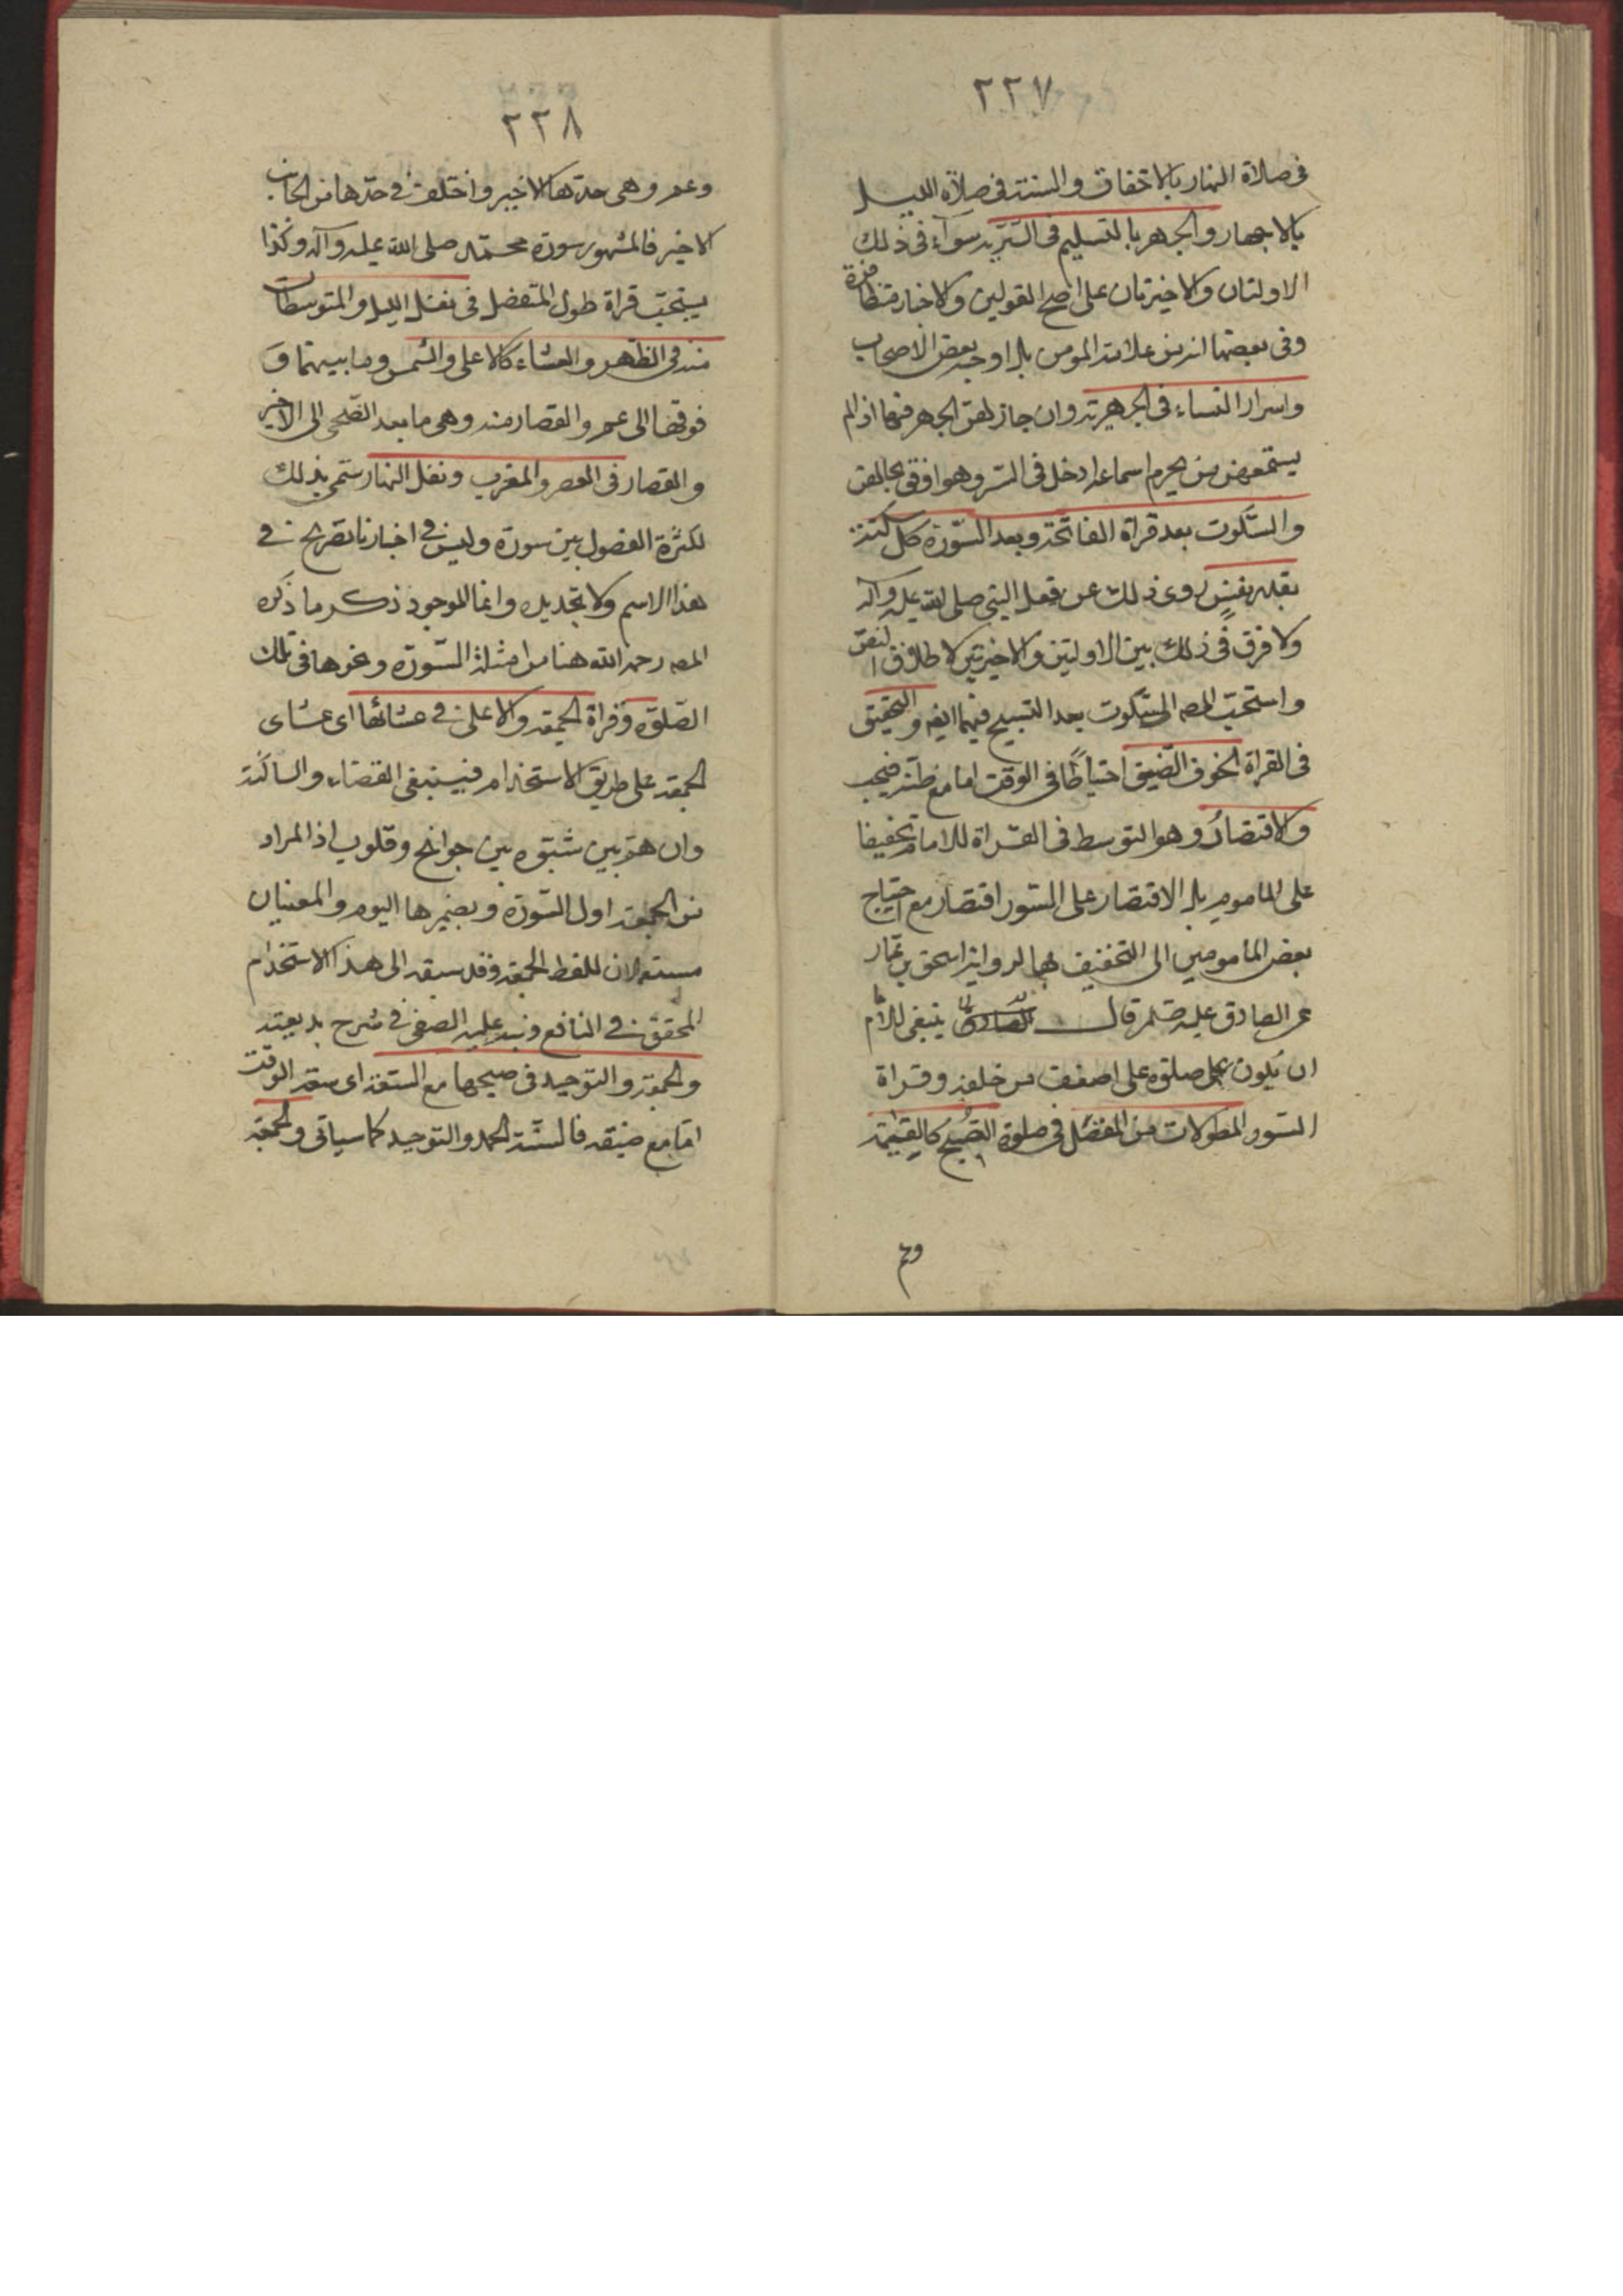 ٢٢٧
فى صلاة النهار بالاخفات والسنة فى صلاة الليل
بالاجهار والجهر بالتسليم فى السرية سوآء فى ذلك
الاولتان والاخيرتان على اصح القولين والاخبار متظافرة
وفى بعضها انه من علامة المومن بل اوجبه بعض الاصحاب
واسرار النساء فى الجهرية وان جاز لهن الجهر فيها اذا لم
يستمعهن من يحرم اسماعه ادخل فى الستر وهو اوفق بحالهن
والسّكوت بعد قراة الفاتحة وبعد السّورة كل سكتة
بقدر نفسٍ روى ذلك عن فعل النبى صلى الله عليه وآله
ولا فرق فى ذلك بين الاولتين والاخيرتين لاطلاق النص
واستحب المصـ السّكوت بعد التسبيح فيهما ايضا والتخفيف
فى القراة لخوف الضّيق احتياطًا فى الوقت اما مع ظنه فيجب
والاقتصارُ وهو التوسط فى القراة للامام تخفيفا
على الماموم بل الاقتصار على السّور القصار مع احتياج
بعض المامومين الى التخفيف لها لرواية اسحق بن عمار
عن الصادق عليه قال ينبغى للامام
ان يكون صلوته على اضعف من خلفه وقراة
السّور المطولات من المفصّل فى صلوة الصّبح كالقيمة
وعم
٢٢٨
وعم وهى حدها الاخير واختلف فى حدها من الجانب
الاخير فالمشهور سورة محمّد صلى الله عليه وآله وكذا
يستحبّ قراة طول المفصل فى نفل الليل والمتوسطات
منه فى الظّهر والعشاء كالاعلى والشمس وما بينهما و
فوقها الى عم والقصار منه وهى ما بعد الضّحى الى الاخير
والقصار فى العصر والمغرب ونفل النهار سمّى بذلك
لكثرة الفصول بين سورة وليس فى اخبارنا تصريح فى
هذا الاسم ولا تحديده وانما الموجود ذكر ما ذكره
المصـ رحمه الله هنا من امثلة السّورة ونحوها فى تلك
الصّلوة وقراة الجمعة والاعلى فى عشائها اى عشاى
الجمعة على طريق الاستخدام فيسقى الغضاء والساكنة
وان هم بين شبّوه بين جوانح وقلوب اذ المراد
من الجمعة اول السّورة وبضميرها اليوم والمعنيان
مستعملان للفظ الجمعة وقد سبقه الى هذا الاستخدام
المحقق فى النافع ونبه عليه الصفى فى شرح بديعته
والجمعة والتوحيد فى صبحها مع السعة اى سعة الوقت
امّا مع ضيقه فالسّنّة الحمد والتوحيد كما سياتى والجمعة